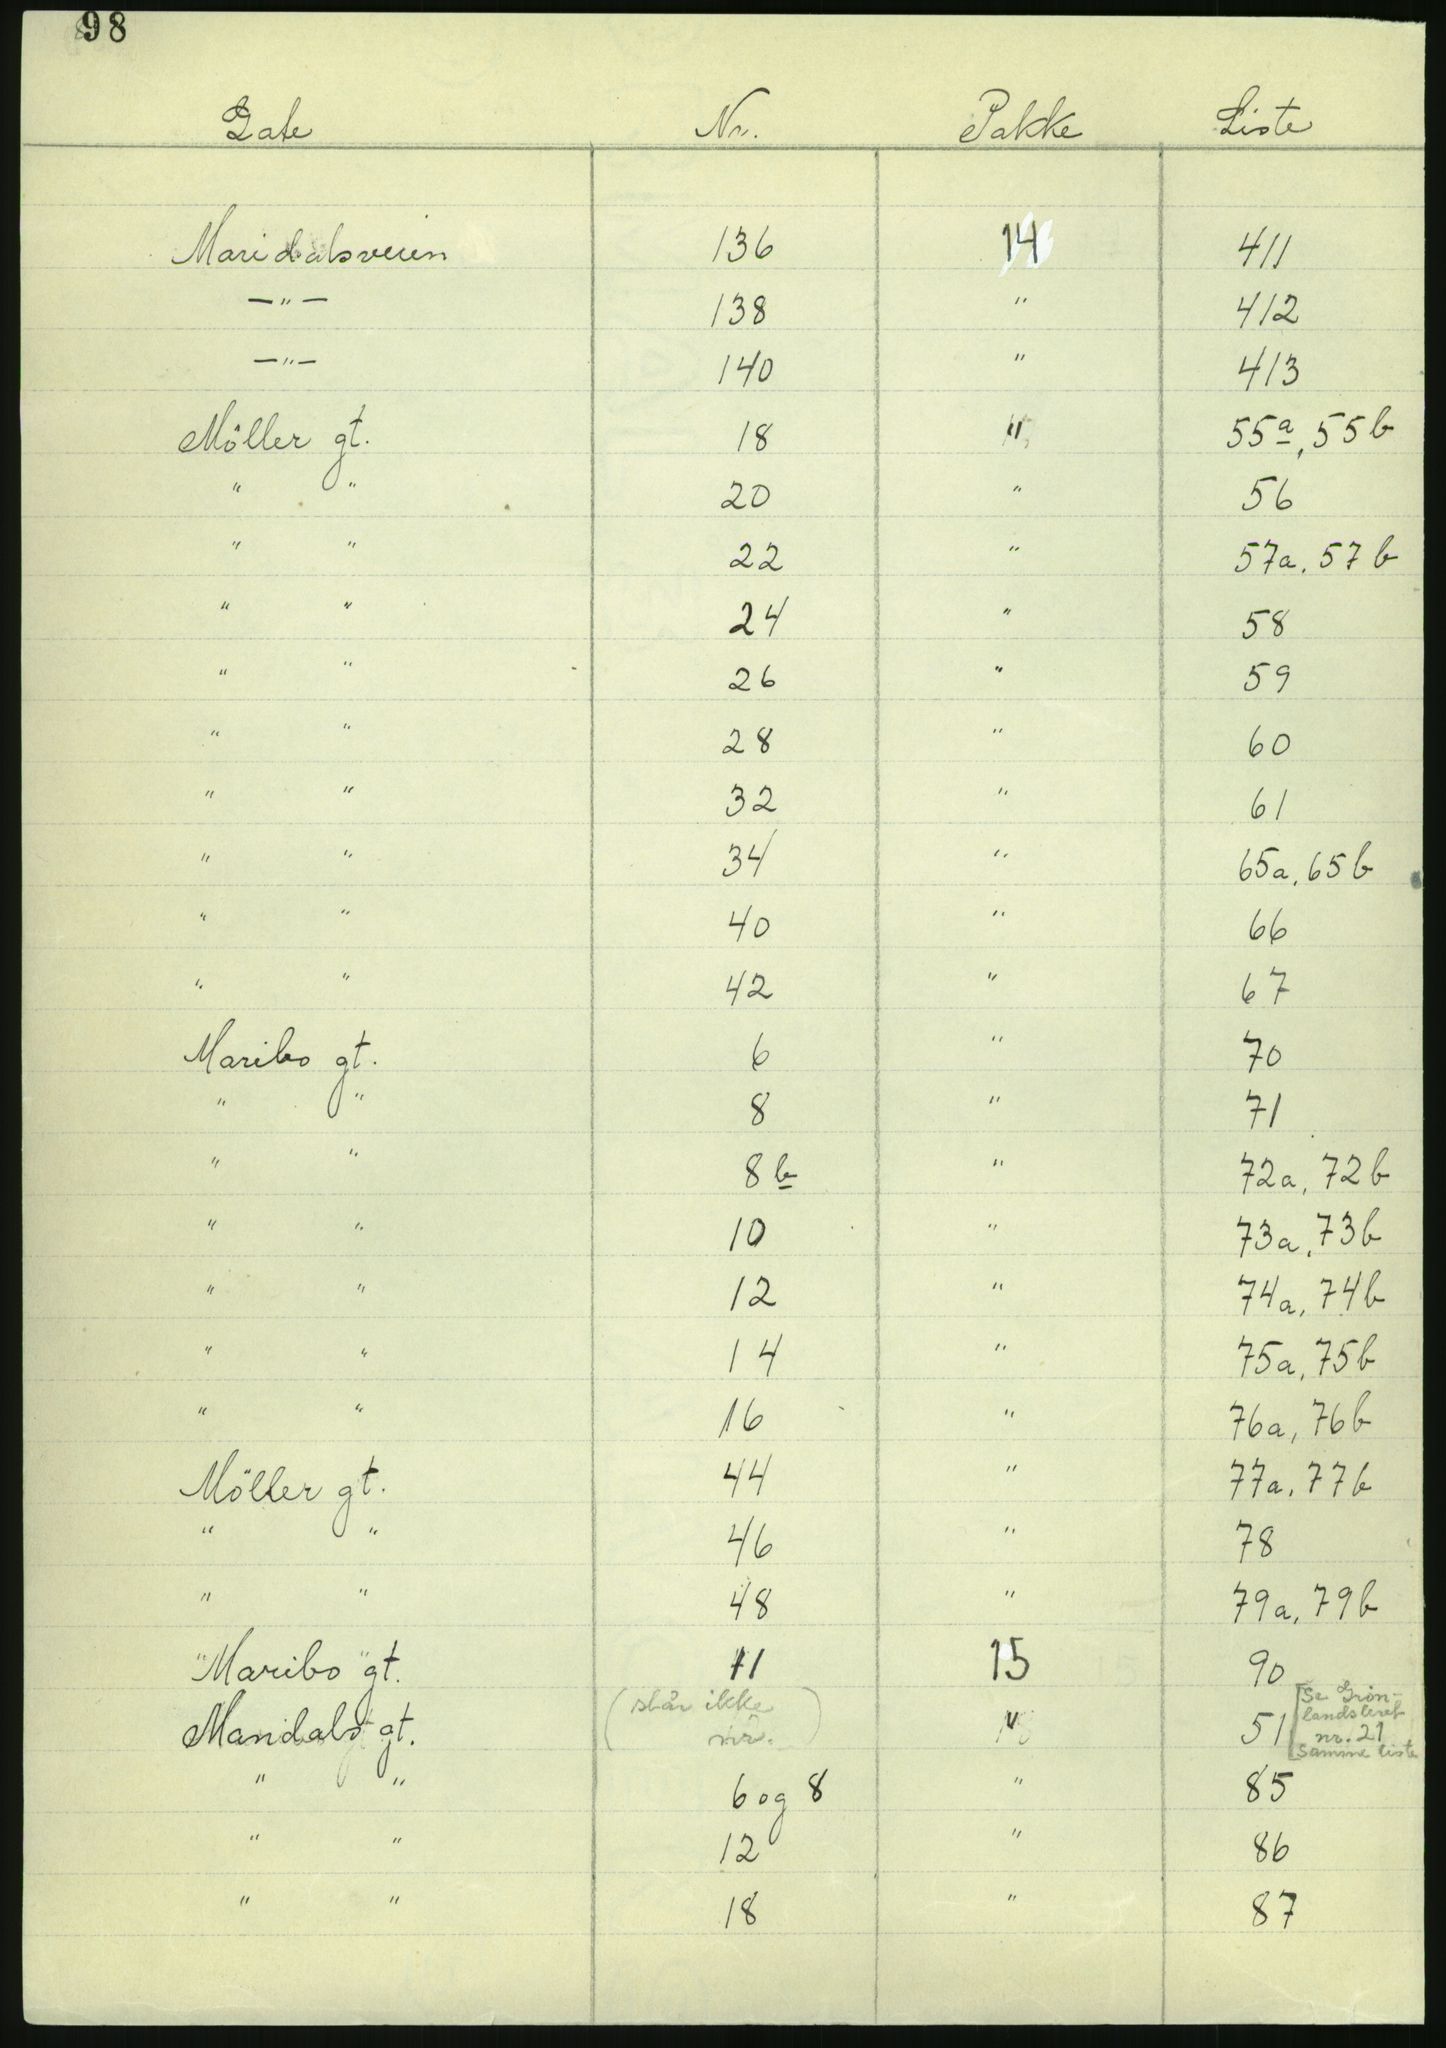 98
Gate Nr. Pakke Liste
Maridalsveien 136 14 411
— " — 138 " 412
— " — 140 " 413
Möller gt. 18 " 55a, 55b
" " 20 " 56
" " 22 " 57a, 57b
" " 24 " 58
" " 26 " 59
" " 28 " 60
" " 32 " 61
" " 34 " 65a, 65b
" " 40 " 66
" " 42 " 67
Maribo gt. 6 " 70
" " 8 " 71
" " 8b " 72a, 72b
" " 10 " 73a, 73b
" " 12 " 74a, 74b
" " 14 " 75a, 75b
" " 16 " 76a, 76b
Möller gt. 44 " 77a, 77b
" " 46 " 78
" " 48 " 79a, 79b
"Maribo "gt. 11 15 90
Mandals gt. (står ikke nr.) " 51 [Se Grön-
landsleret
nr. 21
samme liste
" " 6 og 8 " 85
" " 12 " 86
" " 18 " 87